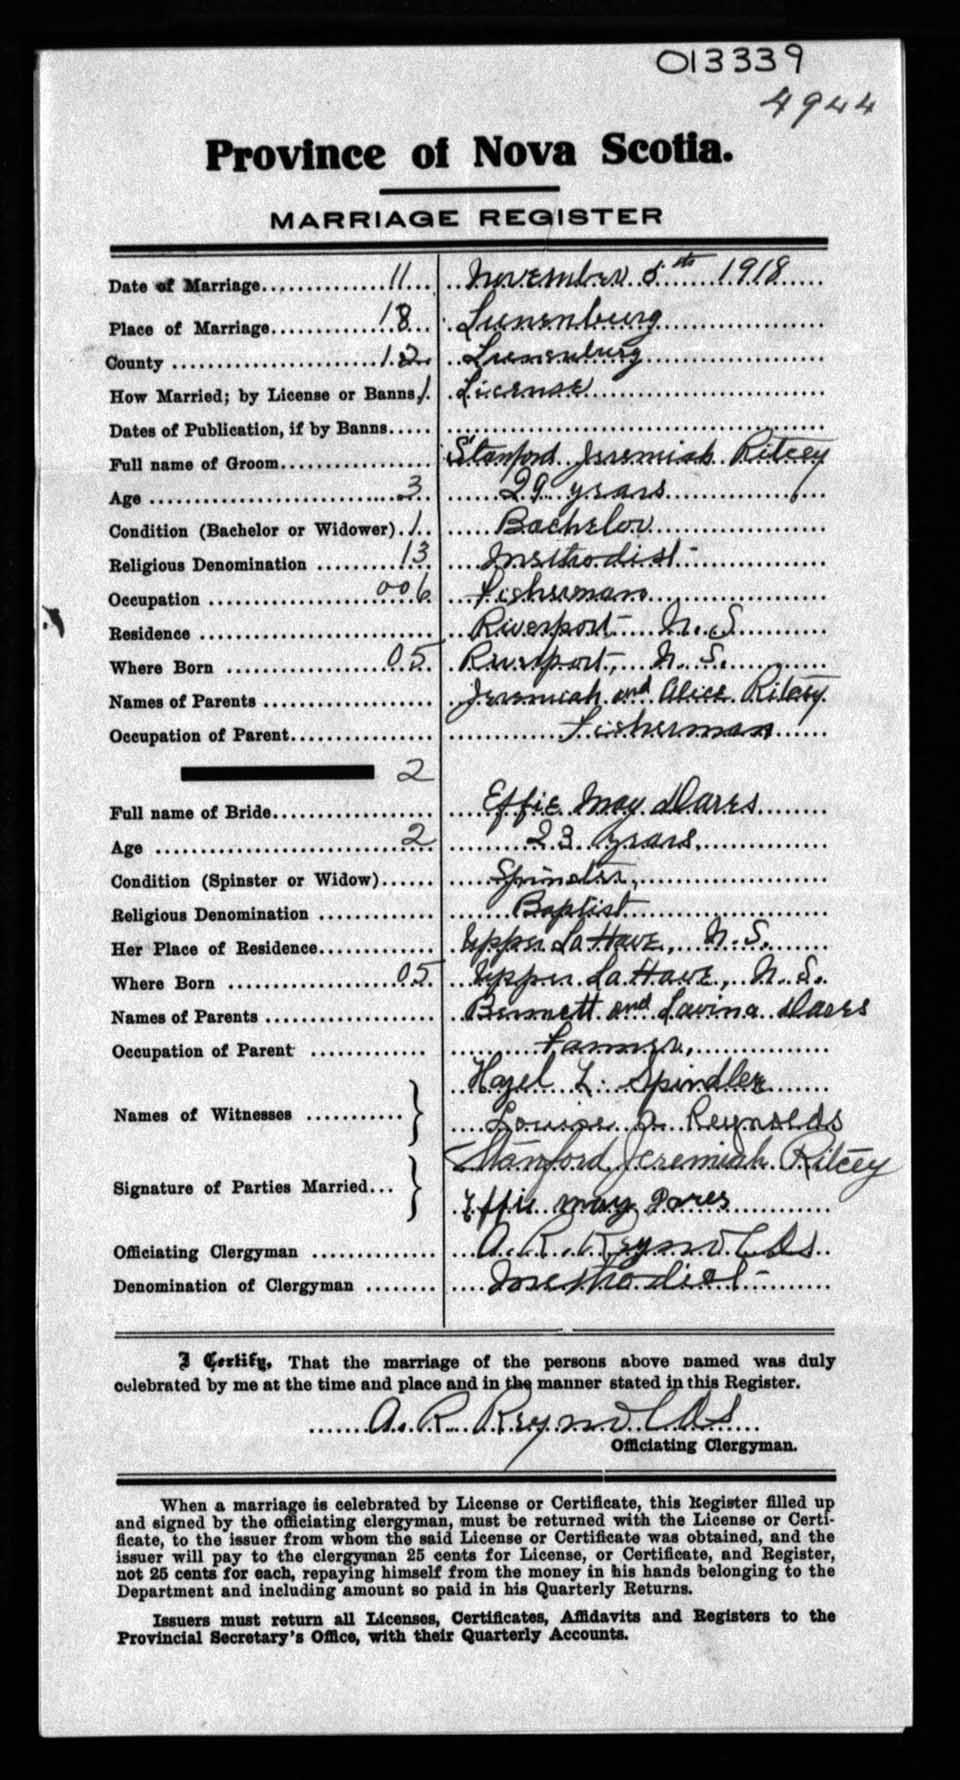 013339
4944
Province of Nova Scotia.
MARRIAGE REGISTER
Date of Marriage 11 November 5th 1918
Place of Marriage 18 Lunenburg
County 12 Lunenburg
How Married; by License or Banns 1 License
Dates of Publication, if by Banns
Full name of Groom Stanford Jeremiah Ritcey
Age 3 29 years
Condition (Bachelor or Widower) 1 Bachelor
Religious Denomination 13 Methodist
Occupation 006 Fisherman
Residence Riverport N.S
Where Born 05 Riverport, N.S.
Names of Parents Jeremiah and Alice Ritcey
Occupation of Parent Fisherman
2
Full name of Bride Effie May Dares
Age 2 23 years
Condition (Spinster or Widow) Spinster,
Religious Denomination Baptist
Her Place of Residence Upper LaHave, N.S.
Where Born 05 Upper LaHave, N.S.
Names of Parents Bennett and Lavina Dares
Occupation of Parent Farmer,
Hazel L. Spindler
Names of Witnesses
Louise Reynolds
Stanford Jeremiah Ritcey
Signature of Parties Married
Effie may Dares
Officiating Clergyman A. R. Reynolds
Denomination of Clergyman Methodist
I Certify, That the marriage of the persons above named was duly
celebrated by me at the time and place and in the manner stated in this Register.
A. R. Reynolds
Officiating Clergyman.
When a marriage is celebrated by License or Certificate, this Register filled up
and signed by the officiating clergyman, must be returned with the License or Certi-
ficate, to the issuer from whom the said License or Certificate was obtained, and the
issuer will pay to the clergyman 25 cents for License, or Certificate, and Register,
not 25 cents for each, repaying himself from the money in his hands belonging to the
Department and including amount so paid in his Quarterly Returns.
Issuers must return all Licenses, Certificates, Affidavits and Registers to the
Provincial Secretary's Office, with their Quarterly Accounts.